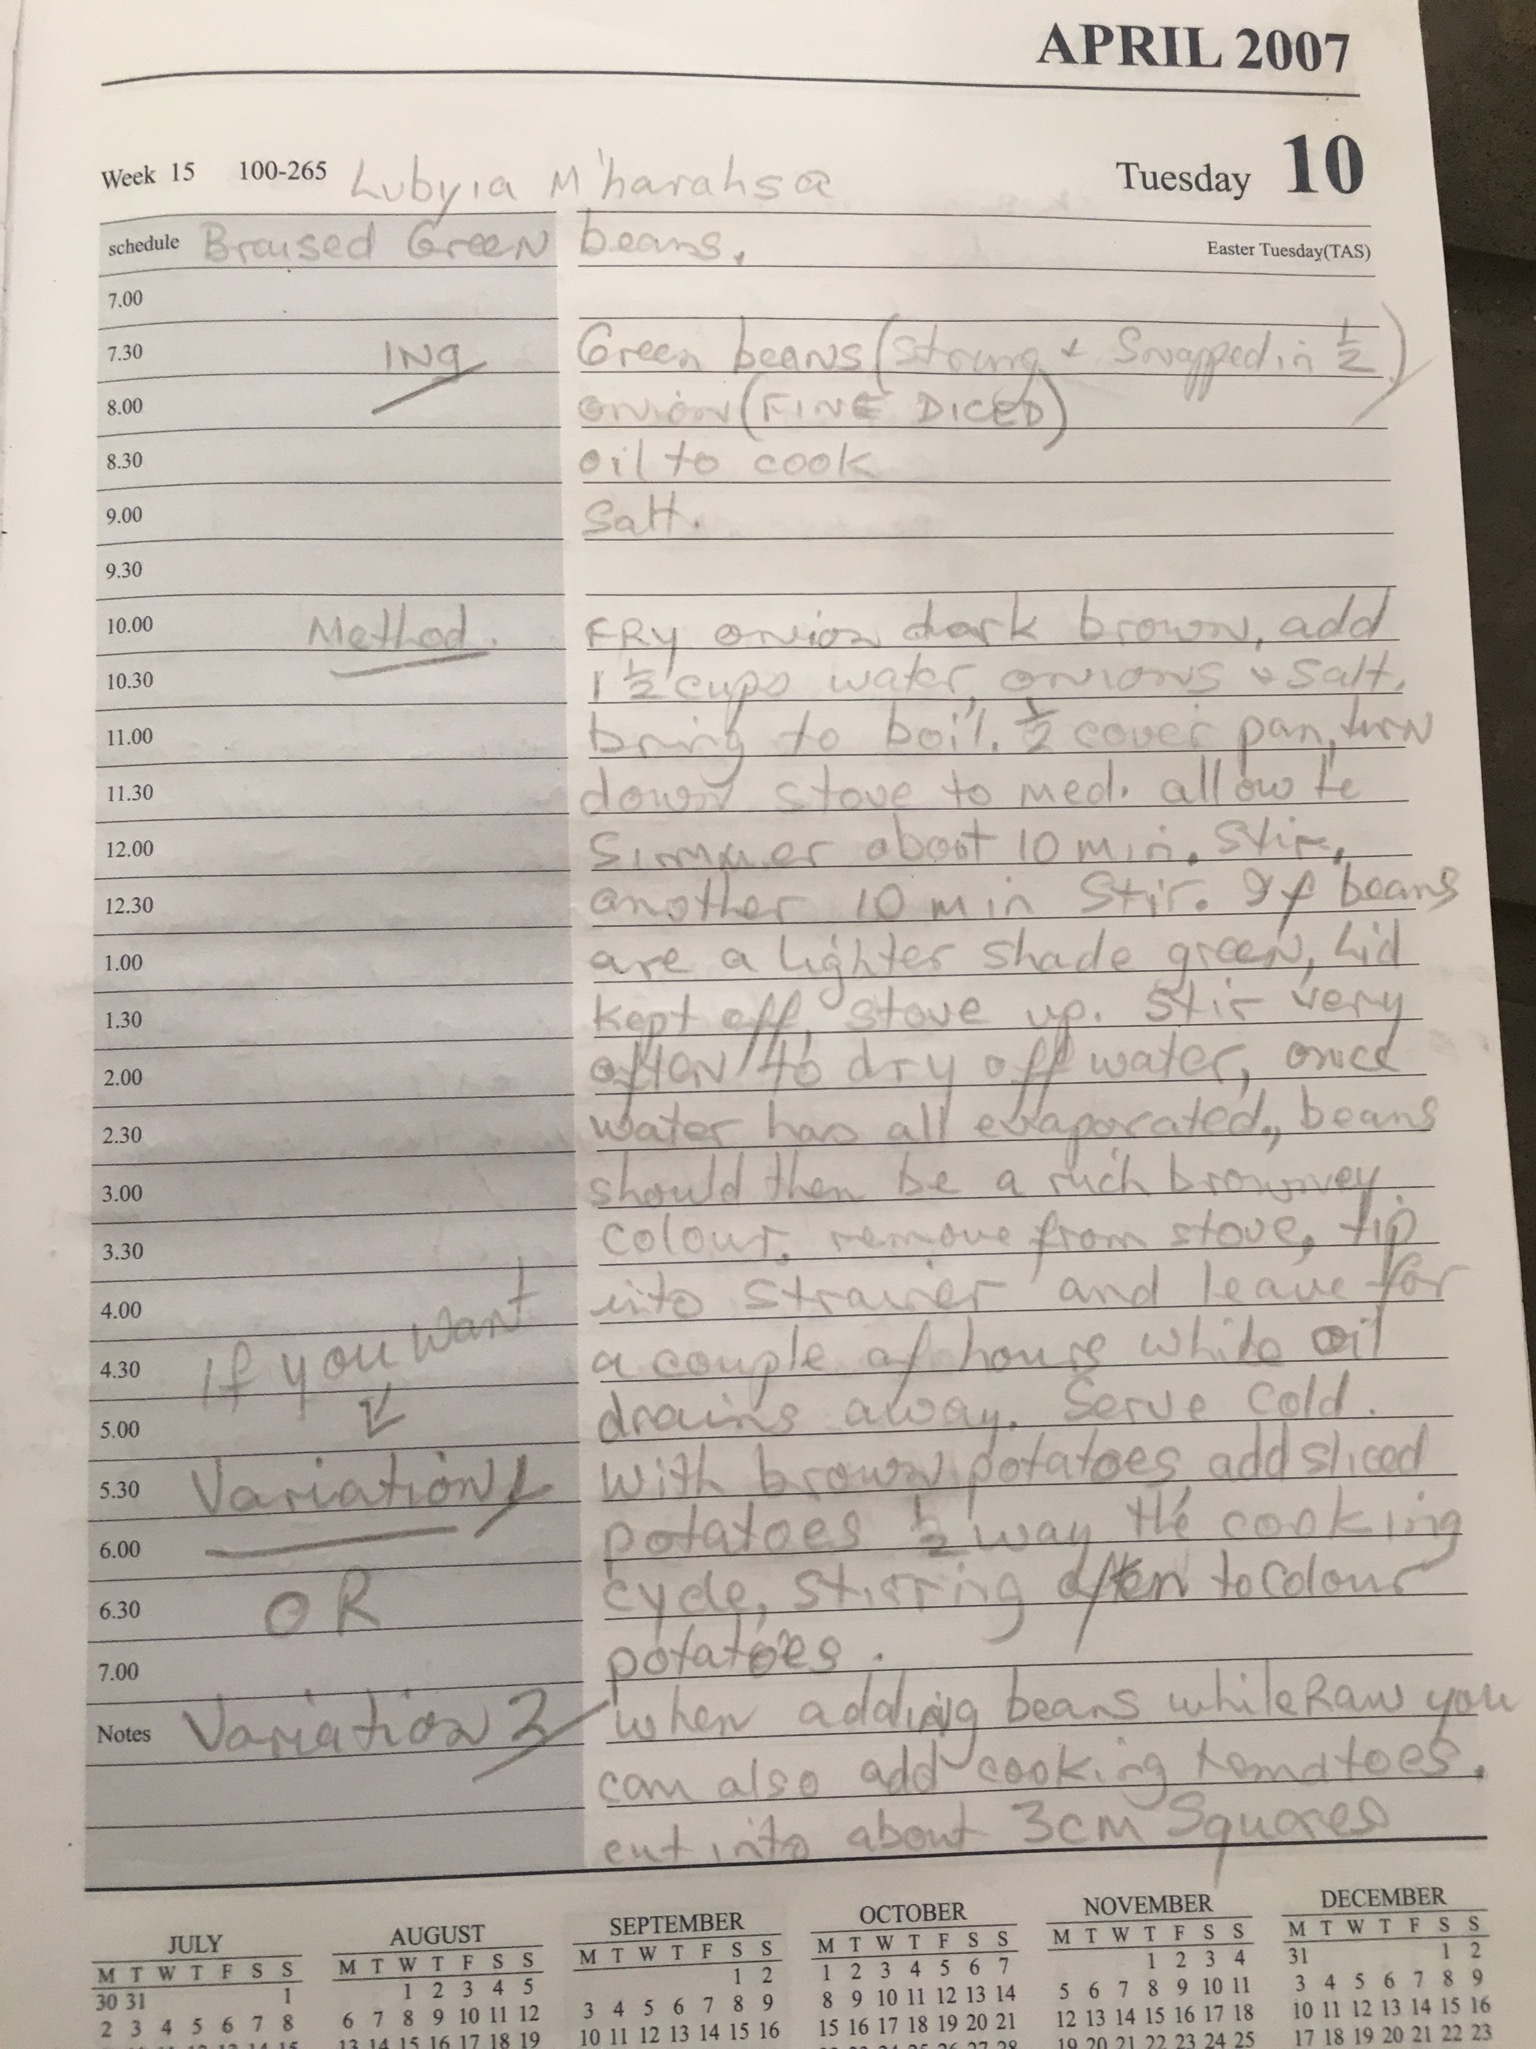 APRIL 2007
Week 15 100-265 Lubyia M'harahsa Tuesday 10
schedule Braised Green beans. Easter Tuesday(TAS)
7.00
7.30 ING Green beans (strung + Snapped in ½)
8.00 onion (FINE DICED)
8.30 oil to cook
9.00 Salt.
9.30
10.00 Method. FRY onion dark brown, add
10.30 1 ½ cups water, onions & salt.
11.00 bring to boil. ½ cover pan, turn
11.30 down stove to med. allow to
12.00 Simmer about 10 min. Stir,
12.30 another 10 min Stir. If beans
1.00 are a lighter shade green, Lid
1.30 kept off, stove up. Stir very
2.00 often to dry off water, once
2.30 water has all evaporated, beans
3.00 should then be a rich browney
3.30 colour. remove from stove, tip
4.00 into strainer and leave for
4.30 If you want a couple of hours while oil
5.00 drains away. Serve Cold.
5.30 Variation 1 With brown potatoes, add sliced
6.00 potatoes ½ way the cooking
6.30 OR cycle, stirring often to colour
7.00 potatoes.
Notes Variation 2 when adding beans while Raw you
can also add cooking tomatoes.
cut into about 3cm Squares
JULY AUGUST SEPTEMBER OCTOBER NOVEMBER DECEMBER
M T W T F S S M T W T F S S M T W T F S S M T W T F S S M T W T F S S M T W T F S S
30 31 1 1 2 3 4 5 1 2 1 2 3 4 5 6 7 1 2 3 4 31 1 2
2 3 4 5 6 7 8 6 7 8 9 10 11 12 3 4 5 6 7 8 9 8 9 10 11 12 13 14 5 6 7 8 9 10 11 3 4 5 6 7 8 9
13 14 15 16 17 18 19 10 11 12 13 14 15 16 15 16 17 18 19 20 21 12 13 14 15 16 17 18 10 11 12 13 14 15 16
19 20 21 22 23 24 25 17 18 19 20 21 22 23